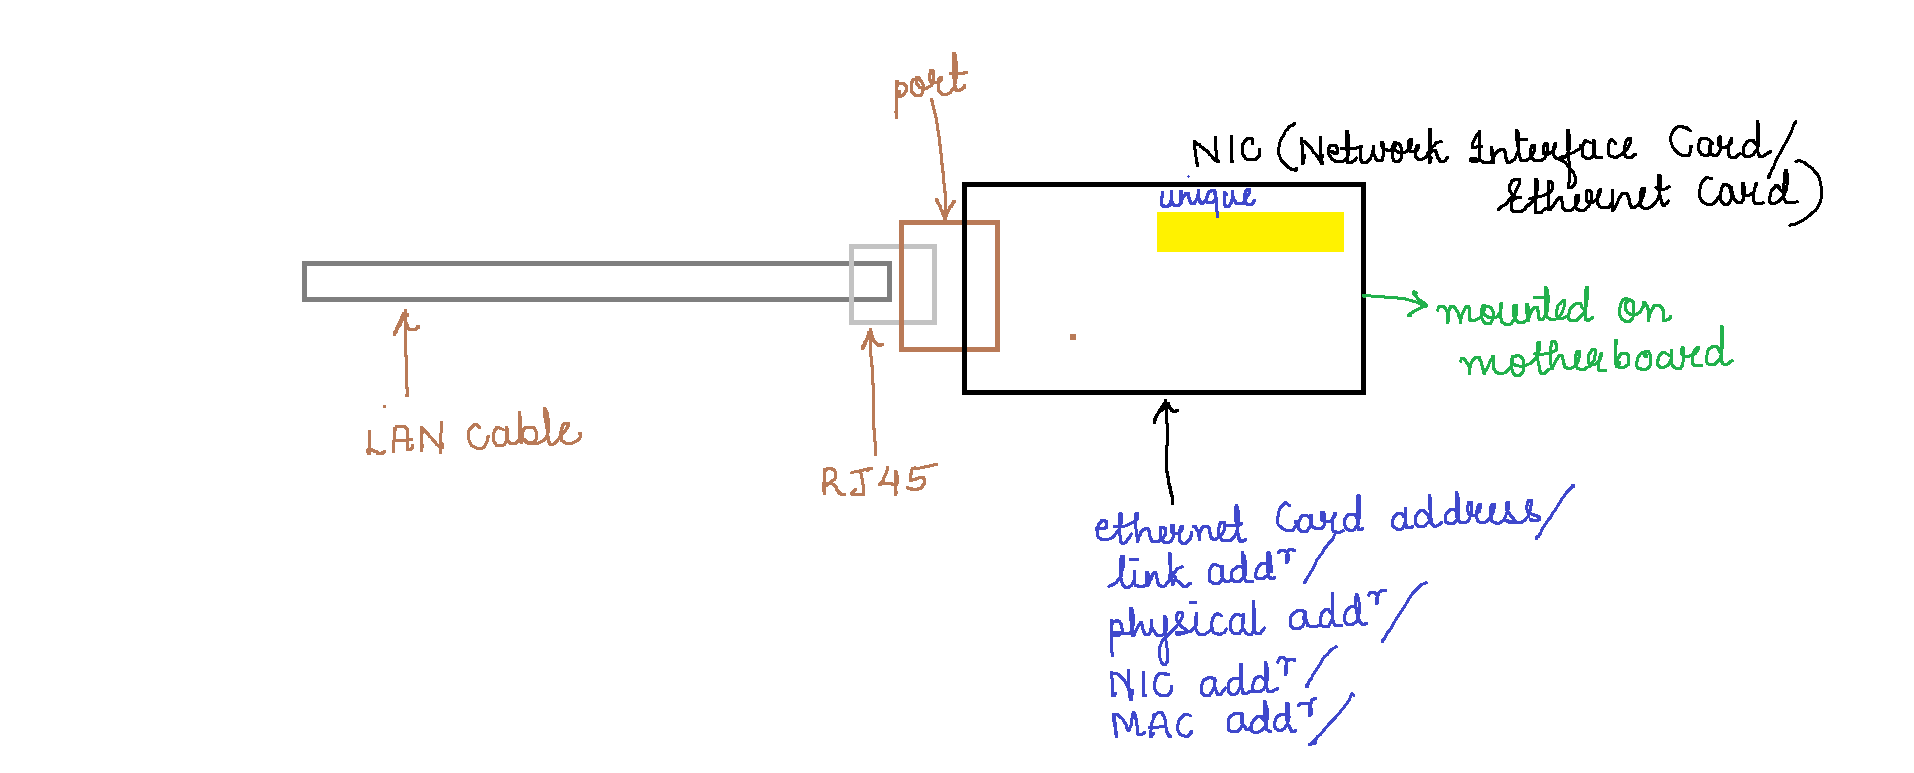 port
NIC (Network Interface Card/
Ethernet Card)
unique
mounted on
motherboard
LAN Cable
RJ45
ethernet Card address/
link addʳ/
physical addʳ/
NIC addʳ/
MAC addʳ/